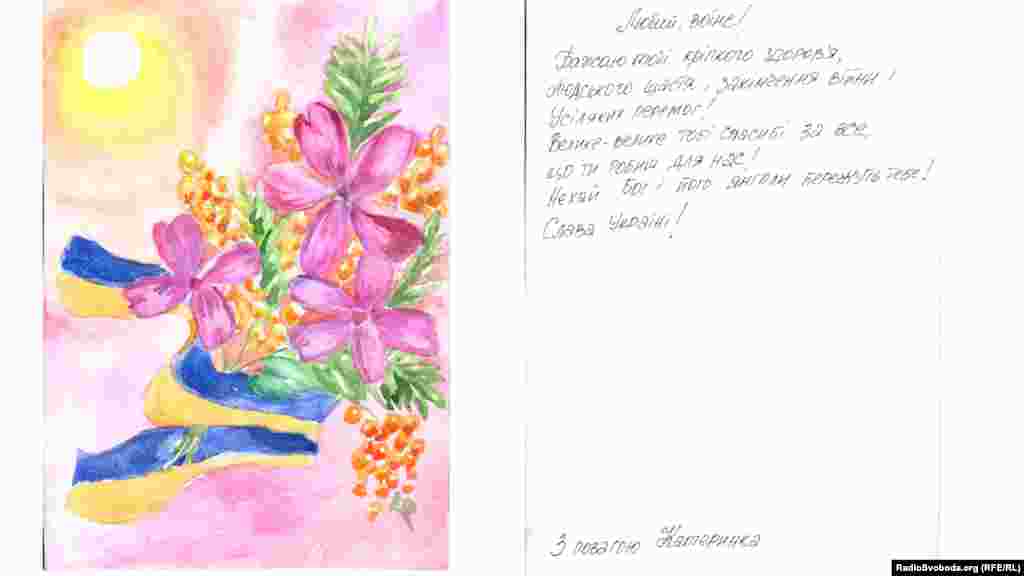 Любий, воїне!
Бажаю тобі кріпкого здоров'я,
людського щастя, закінчення війни і
усіляких перемог!
Велике-велике тобі спасибі за все,
що ти робиш для нас!
Нехай Бог і його янголи бережуть тебе!
Слава Україні!
З повагою Катеринка
RadioSvoboda.org (RFE/RL)